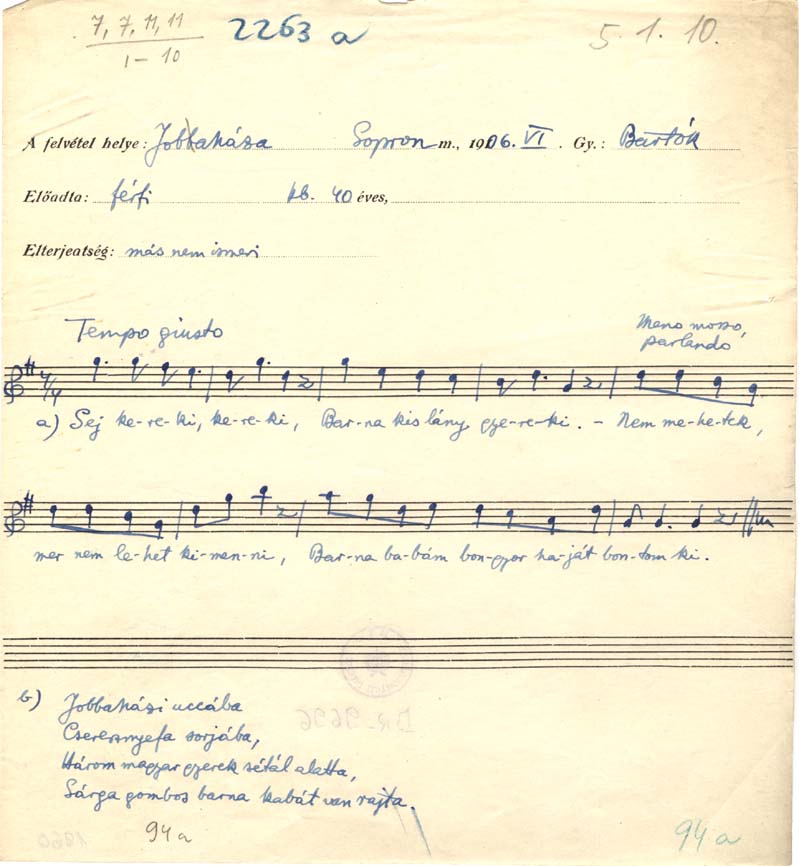 7, 7, 11, 11 2263 a 5. 1. 10.
1 – 10
A felvétel helye: Jobbaháza Sopron m., 1906. VI. Gy.: Bartók
Előadta: férfi kb. 40 éves,
Elterjeatség: más nem ismeri
Tempo giusto Meno mosso,
parlando
4/4
a) Sej ke-re-ki, ke-re-ki, Bar-na kis lány gye-re-ki. – Nem me-he-tek,
mer nem le-het ki-men-ni, Bar-na ba-bám bon-gyor ha-ját bon-tom ki.
b) Jobbaházi uccába
Cseresnyefa sorjába,
Három magyar gyerek sétál alatta,
Sárga gombos barna kabát van rajta.
94 a 94 a